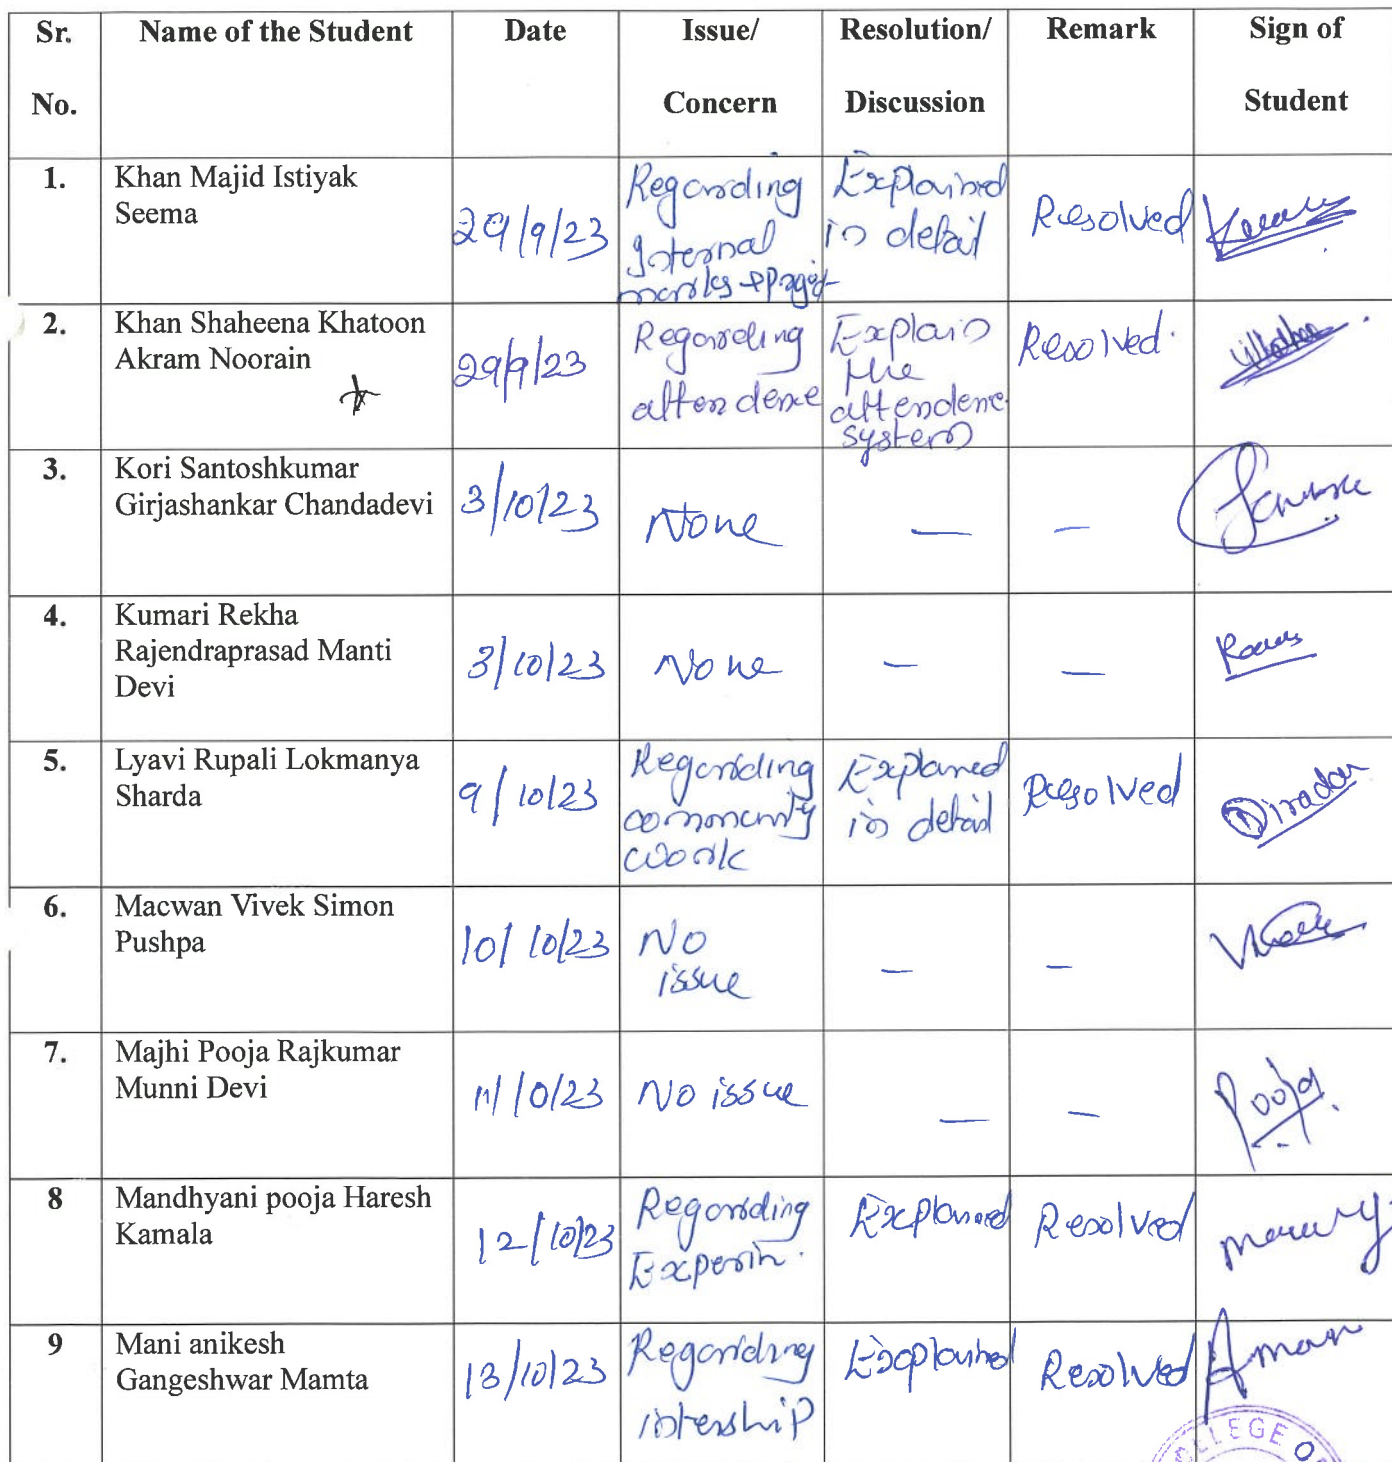 Sr. No. Name of the Student Date Issue/ Concern Resolution/ Discussion Remark Sign of Student
1. Khan Majid Istiyak Seema 29/9/23 Regarding Internal marks Explained in detail Resolved
2. Khan Shaheena Khatoon Akram Noorain 29/9/23 Regarding attendence Explain the attendence system Resolved.
3. Kori Santoshkumar Girjashankar Chandadevi 3/10/23 None — –
4. Kumari Rekha Rajendraprasad Manti Devi 3/10/23 None – —
5. Lyavi Rupali Lokmanya Sharda 9/10/23 Regarding community work Explained in detail Resolved
6. Macwan Vivek Simon Pushpa 10/10/23 No issue – –
7. Majhi Pooja Rajkumar Munni Devi 11/10/23 No issue — – Pooja
8 Mandhyani pooja Haresh Kamala 12/10/23 Regarding Experin. Explained Resolved
9 Mani anikesh Gangeshwar Mamta 13/10/23 Regarding intership Explained Resolved